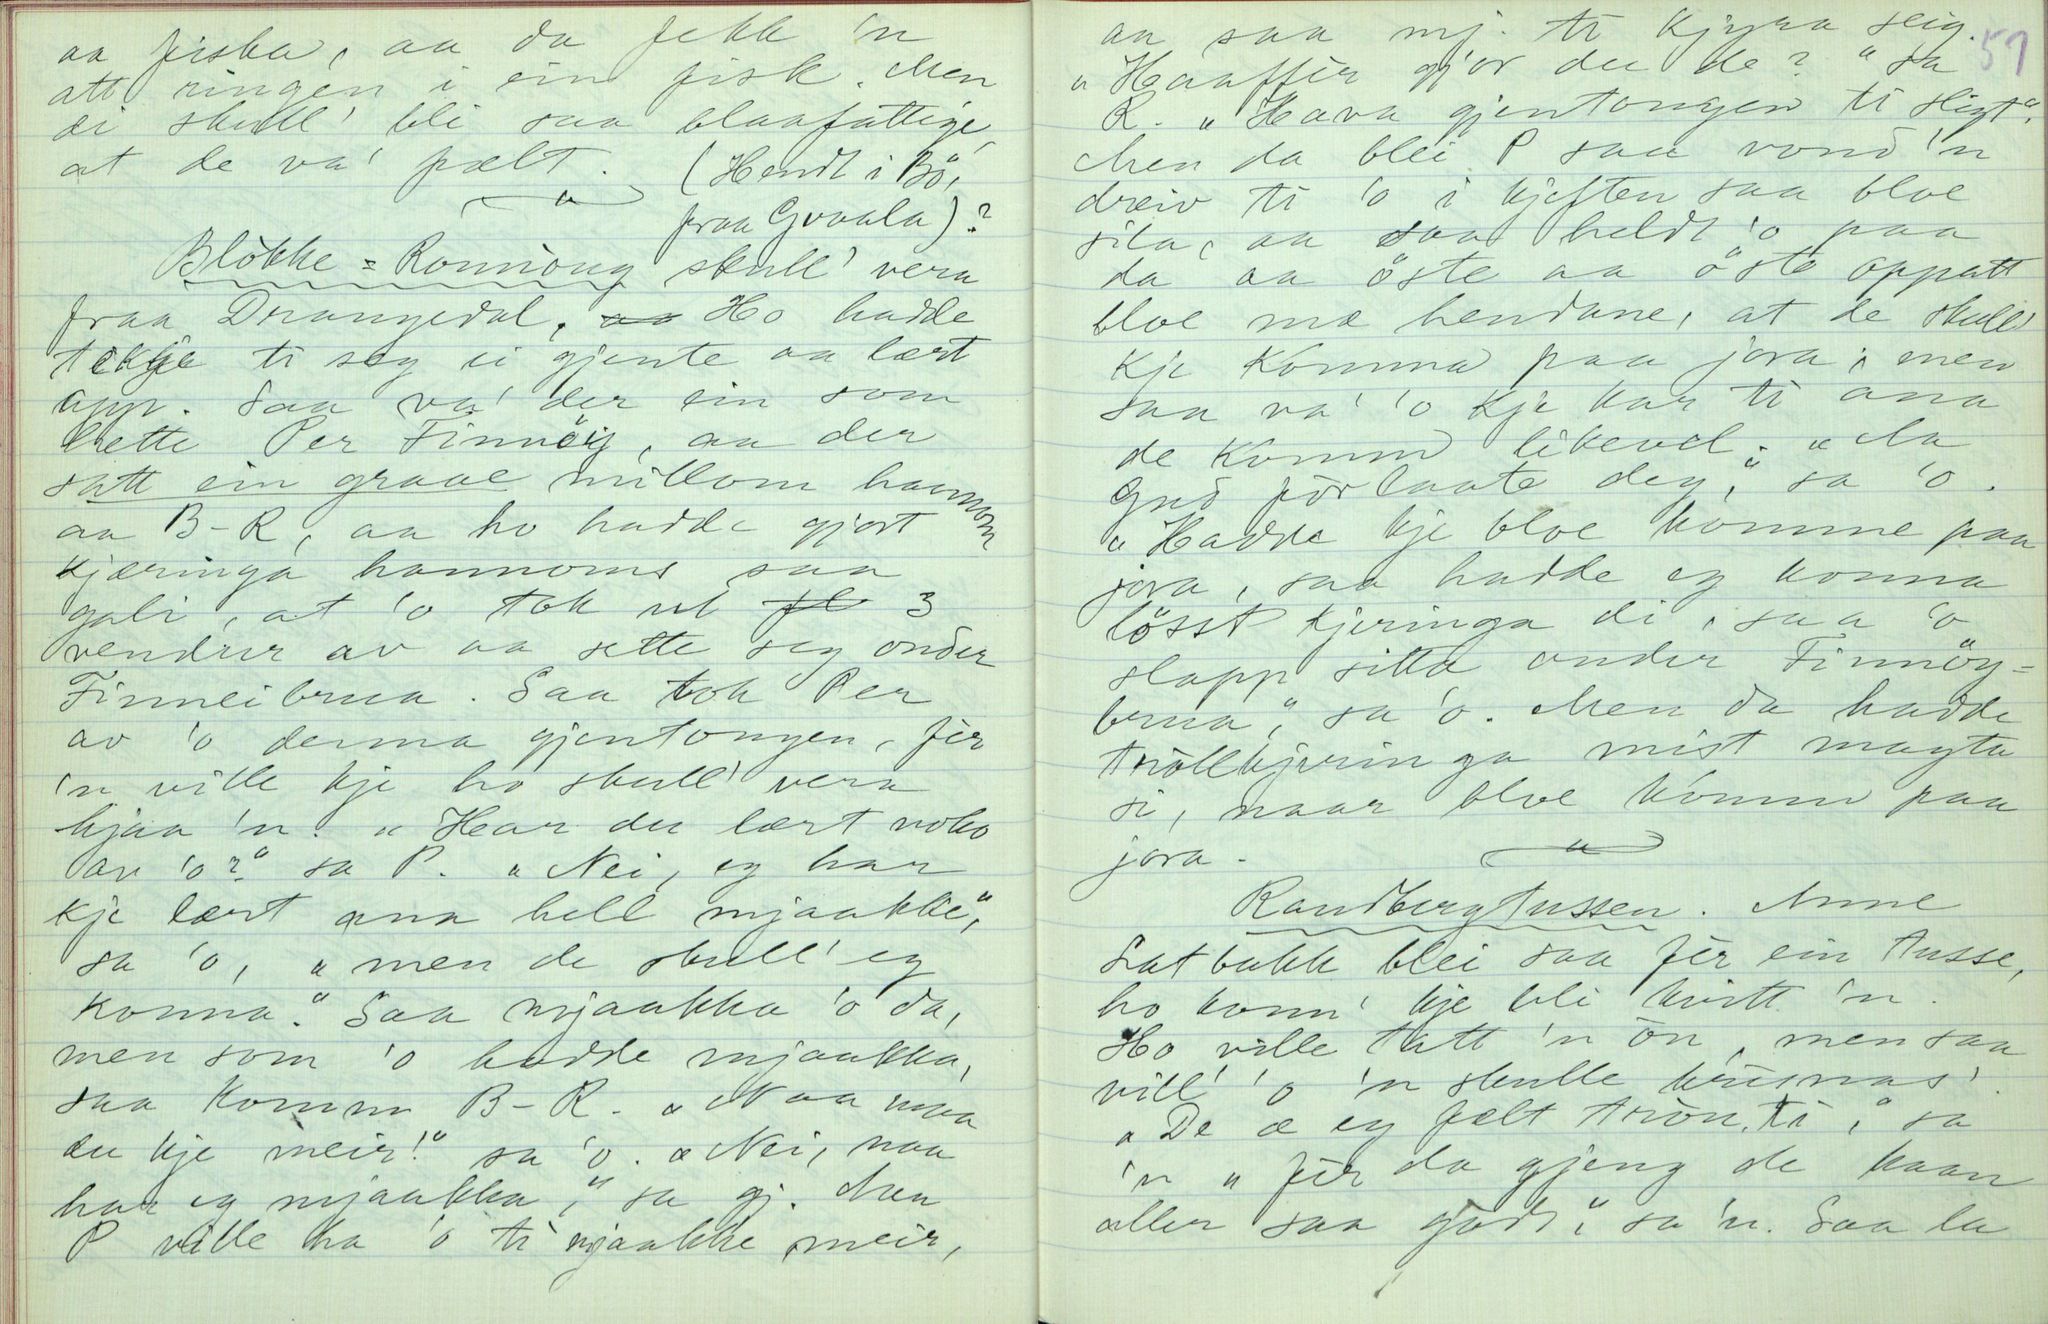 aa fiska, aa da fekk 'n
att ringen i ein fisk. Men
di skull' bli saa blaafattige,
at de va' pælt. (Hendt i Bö,
fraa Gvaala)?
Blökke-Rönnöug skull' vera
fraa Drangedal, aa Ho hadde
tekje ti seg ei gjente aa lært
opp. Saa va' der ein som
hette Per Finnöy, aa der
satt ein graae millom hannom
aa B-R, aa ho hadde gjort
kjæringa hannoms saa
gali, at 'o tok ut fl 3
vendur av aa sette seg onder
Finneibrua. Saa tok Per
av 'o denna gjentongen, fer
'n ville kje ho skull' vera
hjaa 'n. "Har du lært noko
av 'o?" sa P. "Nei, eg har
kje lært ana hell mjaakke",
sa 'o, "men de skull' eg
konna." Saa mjaakka 'o da,
men som 'o hadde mjaakka,
saa komm B-R. "Naa maa
du kje meir!" sa 'o. "Nei, naa
har eg mjaakka," sa gj. Men
P ville ha 'o ti mjaakke meir,
57
aa saa mj. ti kjyra seig.
"Haaffer gjör du de?" sa
R. "Hava gjentongen ti sligt".
Men da blei P saa vond 'n
dreiv ti 'o i kjeften saa bloe
sila, aa saa heldt 'o paa
da aa öste aa öste oppatt
bloe mæ hendane, at de skull'
kje komma paa jora, men
saa va' 'o kje kar ti ana
de komm likevel. "Na
Gud förlaate deg," sa 'o.
"Hadde kje bloe komme paa
jora, saa hadde eg konna
lösst kjeringa di, saa 'o
slapp sitta onder Finnöy-
brua," sa 'o. Men da hadde
tröllkjeringa mist magta
si, naar bloe komm paa
jora.
Randbergtussen. Anne
Satbakk blei saa fer ein tusse,
ho konn' kje bli kvitt 'n.
Ho ville tatt 'n ön, men saa
vill' 'o 'n skulle krisnas'.
"De æ eg fælt trön, ti," sa
'n "fer da gjeng de kaan
aller saa godt," sa 'n. Saa la